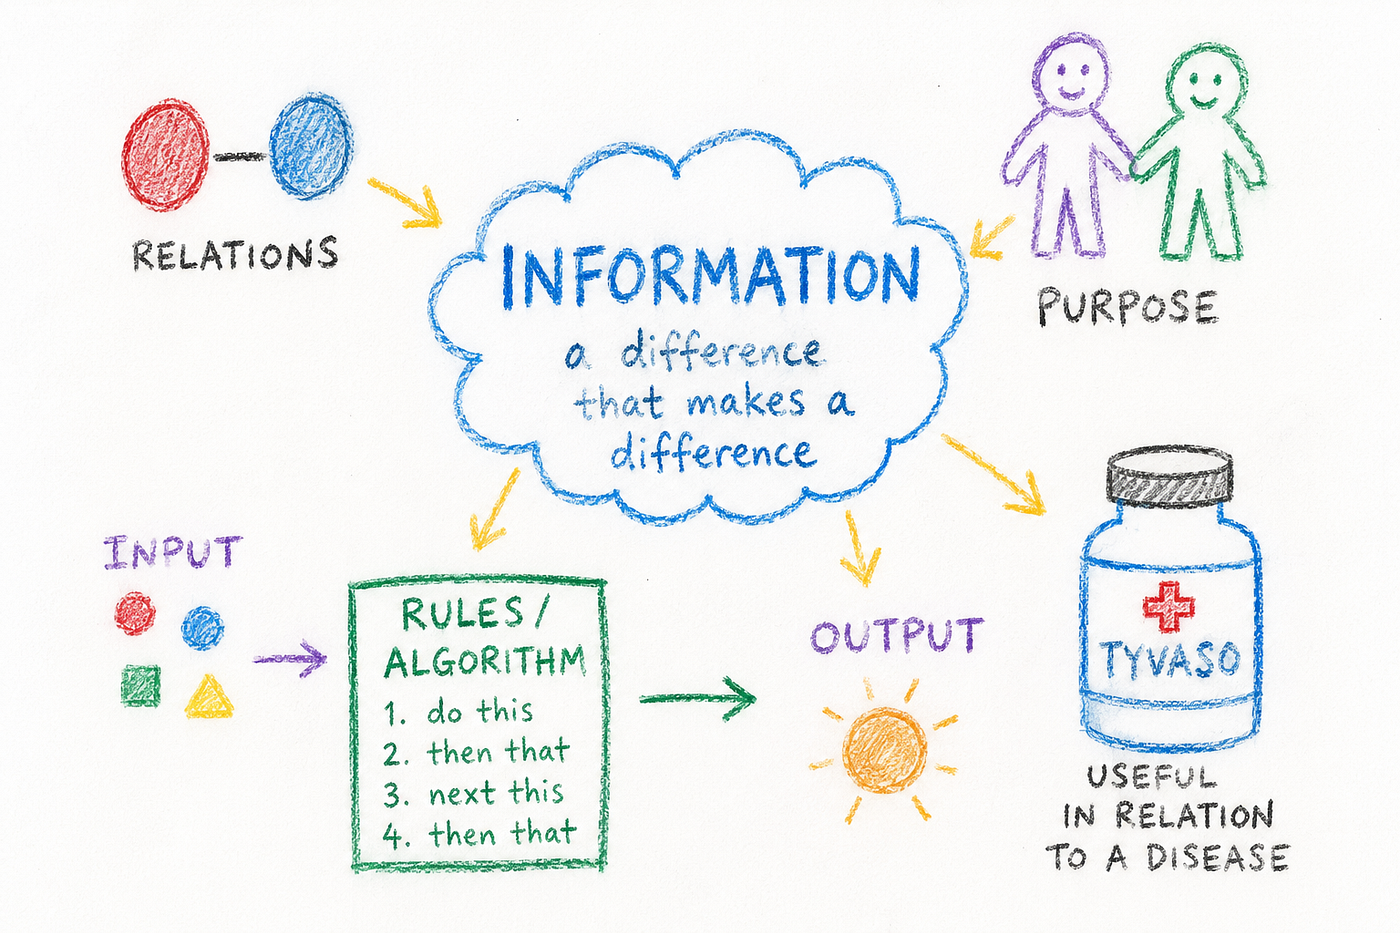 RELATIONS
INFORMATION
a difference
that makes a
difference
PURPOSE
INPUT
RULES/
ALGORITHM
1. do this
2. then that
3. next this
4. then that
OUTPUT
TYVASO
USEFUL
IN RELATION
TO A DISEASE